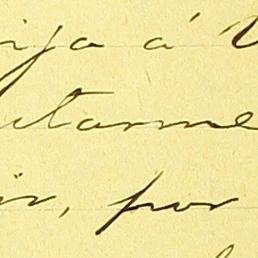 ija á
utarme
ir, por